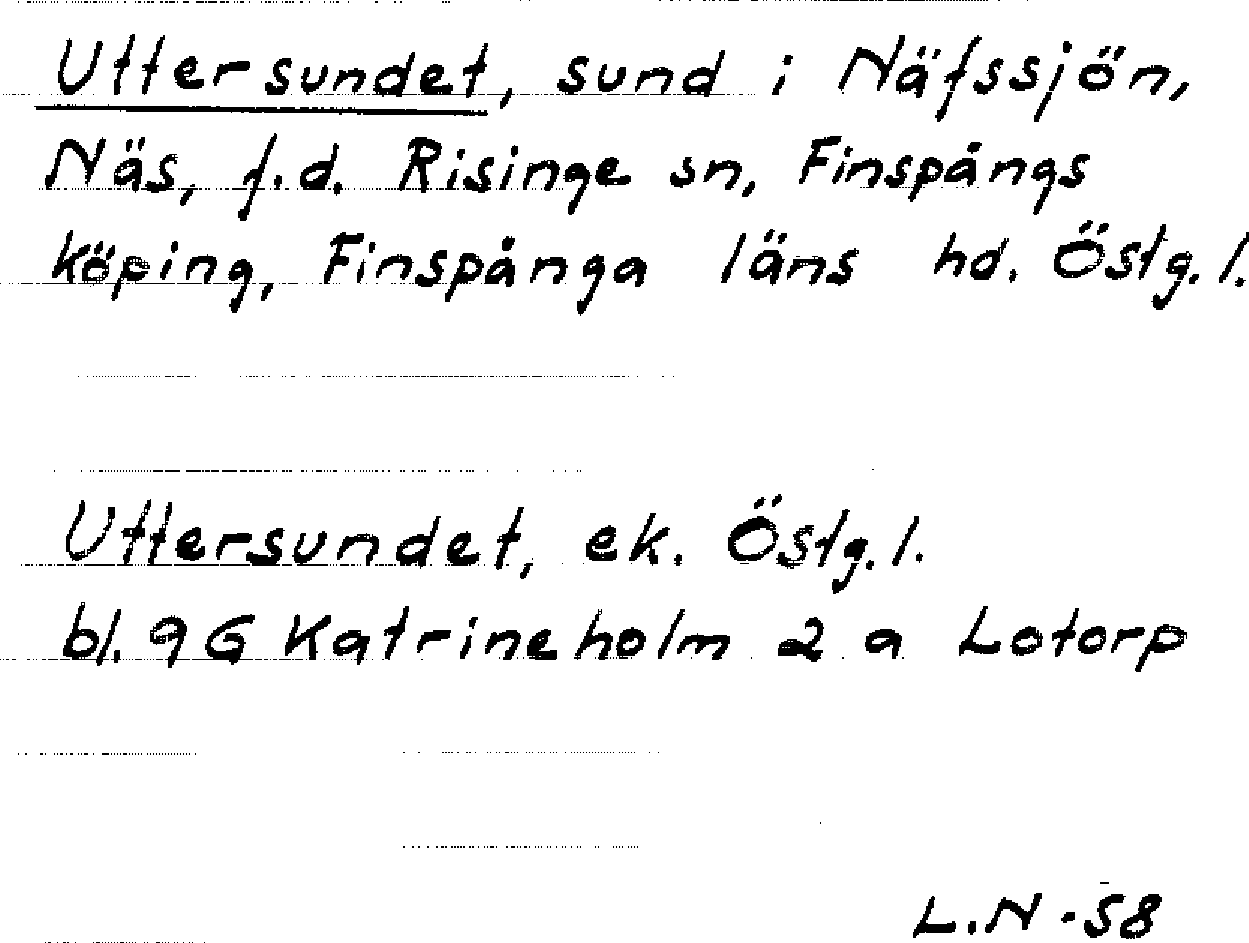 Uttersundet, sund i Näfssjön,
Näs, f.d. Risinge sn, Finspångs
köping, Finspånga läns hd. Östg.l.
Uttersundet, ek. Östg.l.
bl. 9G Katrineholm 2 a Lotorp
L.N -58